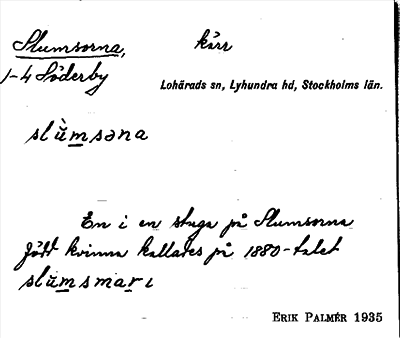 Slumsorna, kärr
1-4 Söderby
Lohärads sn, Lyhundra hd, Stockholms län.
slùmsəna
En i en stuga på Slumsorna
född kvinna kallades på 1880-talet
slumsmarɩ
ERIK PALMÉR 1935